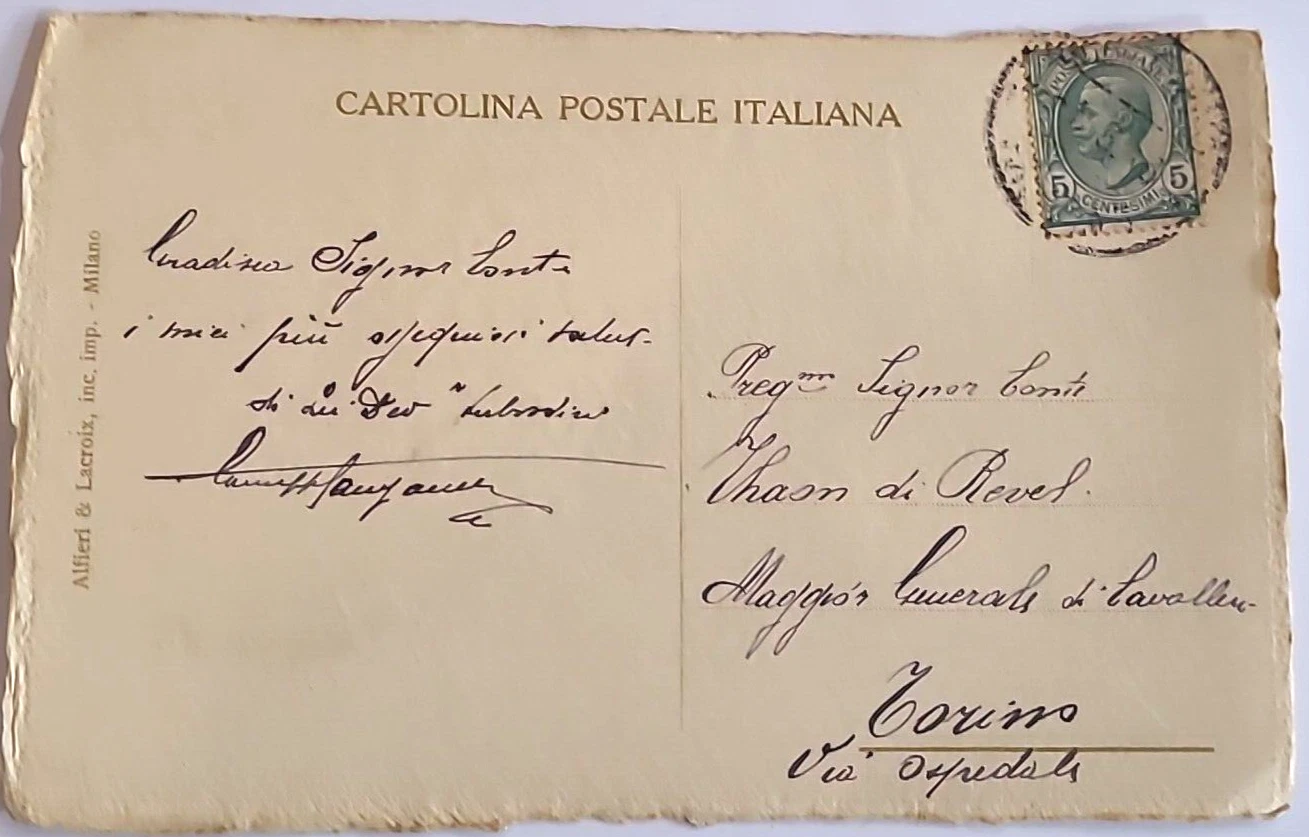 CARTOLINA POSTALE ITALIANA
POSTE ITALIANE
5 5
CENTESIMI
Alfieri & Lacroix, inc. imp. - Milano
Gradisca Signor Conte
i miei più ossequiosi saluti
di Lei Devo
Pregmo Signor Conte
Thaon di Revel.
Maggior Generale di Cavalleria
Torino
Via Ospedale